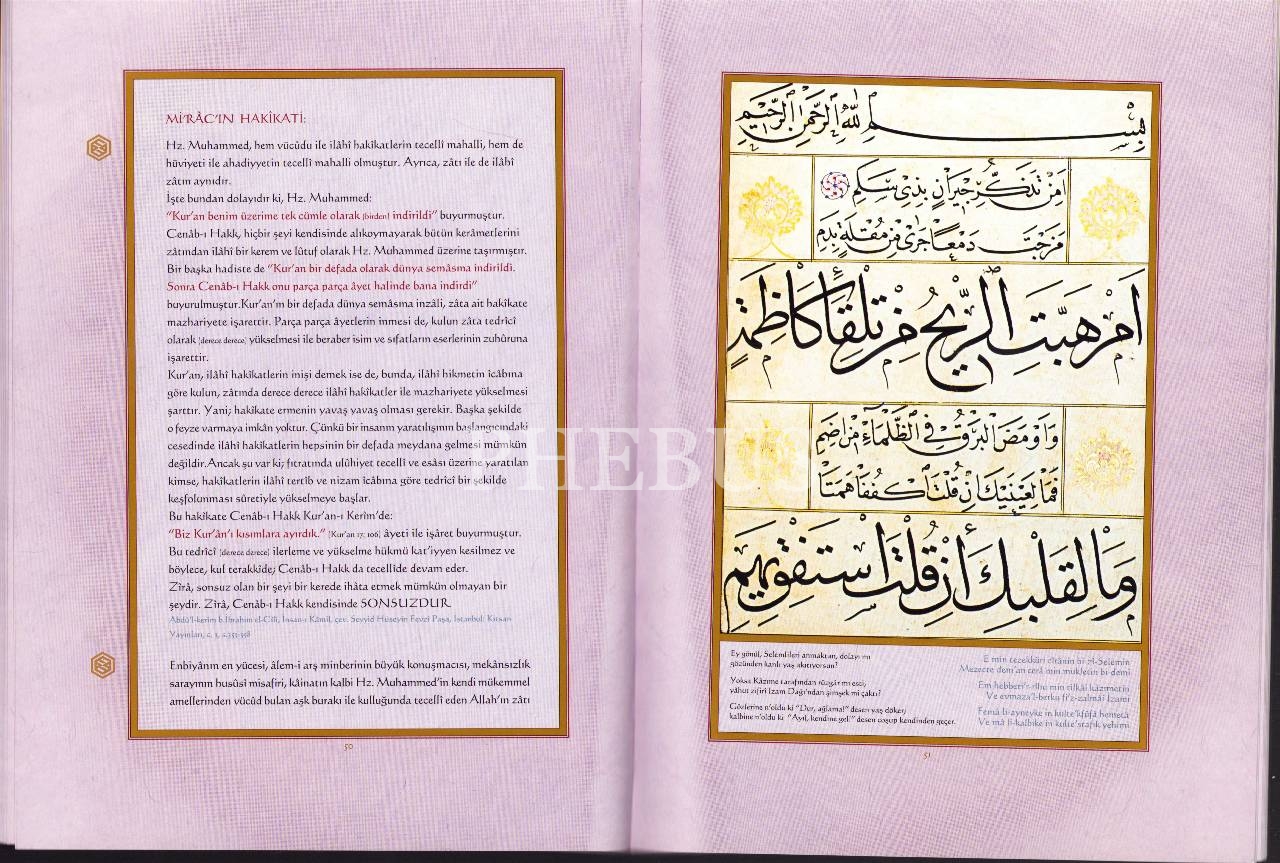 MİʻRÂCʼIN HAKÎKATİ:
Hz. Muhammed, hem vücûdu ile ilâhî hakîkatlerin tecellî mahalli, hem de
hüviyeti ile ahadiyyetin tecellî mahalli olmuştur. Ayrıca, zâtı ile de ilâhî
zâtın aynıdır.
İşte bundan dolayıdır ki, Hz. Muhammed:
“Kur’an benim üzerime tek cümle olarak [birden] indirildi” buyurmuştur.
Cenâb-ı Hakk, hiçbir şeyi kendisinde alıkoymayarak bütün kerâmetlerini
zâtından ilâhî bir kerem ve lûtuf olarak Hz. Muhammed üzerine taşırmıştır.
Bir başka hadiste de “Kur’an bir defada olarak dünya semâsına indirildi.
Sonra Cenâb-ı Hakk onu parça parça âyet halinde bana indirdi”
buyurulmuştur.Kur’an’ın bir defada dünya semâsına inzâli, zâta ait hakîkate
mazhariyete işarettir. Parça parça âyetlerin inmesi de, kulun zâta tedrîcî
olarak [derece derece] yükselmesi ile beraber isim ve sıfatların eserlerinin zuhûruna
işarettir.
Kur’an, ilâhî hakîkatlerin inişi demek ise de, bunda, ilâhî hikmetin îcâbına
göre kulun, zâtında derece derece ilâhî hakîkatler ile mazhariyete yükselmesi
şarttır. Yani; hakîkate ermenin yavaş yavaş olması gerekir. Başka şekilde
o feyze varmaya imkân yoktur. Çünkü bir insanın yaratılışının başlangıcındaki
cesedinde ilâhî hakîkatlerin hepsinin bir defada meydana gelmesi mümkün
değildir.Ancak şu var ki; fıtratında ulûhiyet tecellî ve esâsı üzerine yaratılan
kimse, hakîkatlerin ilâhî tertîb ve nizam îcâbına göre tedrîcî bir şekilde
keşfolunması sûretiyle yükselmeye başlar.
Bu hakîkate Cenâb-ı Hakk Kur’an-ı Kerîm’de:
“Biz Kur’ân’ı kısımlara ayırdık.” [Kur’an 17; 106] âyeti ile işâret buyurmuştur.
Bu tedrîcî [derece derece] ilerleme ve yükselme hükmü kat’iyyen kesilmez ve
böylece, kul terakkîde; Cenâb-ı Hakk da tecellîde devam eder.
Zîrâ, sonsuz olan bir şeyi bir kerede ihâta etmek mümkün olmayan bir
şeydir. Zîrâ, Cenâb-ı Hakk kendisinde SONSUZDUR.
Abdü’l-kerîm b.İbrahim el-Cîlî, İnsan-ı Kâmil, çev. Seyyid Hüseyin Fevzî Paşa, İstanbul: Kitsan
Yayınları, c. 3, s.355-358
Enbiyânın en yücesi, âlem-i arş minberinin büyük konuşmacısı, mekânsızlık
sarayının husûsî misafiri, kâinatın kalbi Hz. Muhammed’in kendi mükemmel
amellerinden vücûd bulan aşk burakı ile kulluğunda tecellî eden Allah’ın zâtı
50
بسم الله الرحمن الرحيم
امن تذكر جيران بذي سلم
مزجت دمعا جرى من مقلة بدم
ام هبت الريح من تلقاء كاظمة
واومض البرق في الظلماء من اضم
فما لعينيك ان قلت اكففا همتا
وما لقلبك ان قلت استفق يهم
Ey gönül, Selemlileri anmaktan, dolayı mı
gözünden kanlı yaş akıtıyorsun?
Yoksa Kâzime tarafından rüzgâr mı esti;
yâhut zifirî İzam Dağı’ndan şimşek mi çaktı?
Gözlerine n’oldu ki “Dur, ağlama!” desen yaş döker;
kalbine n’oldu ki “Ayıl, kendine gel!” desen coşup kendinden geçer.
E min tezekküri cîrânin bi zî-Selemin
Mezecte dem’an cerâ min mukletin bi-demi
Em hebbeti’r-rîhu min tilkâi kâzimetin
Ve evmaza’l-berku fi’z-zalmâi İzami
Femâ li-ayneyke in kulte’kfüfâ hemetâ
Ve mâ li-kalbike in kulte’stafik yehimi
51
PHEBUS